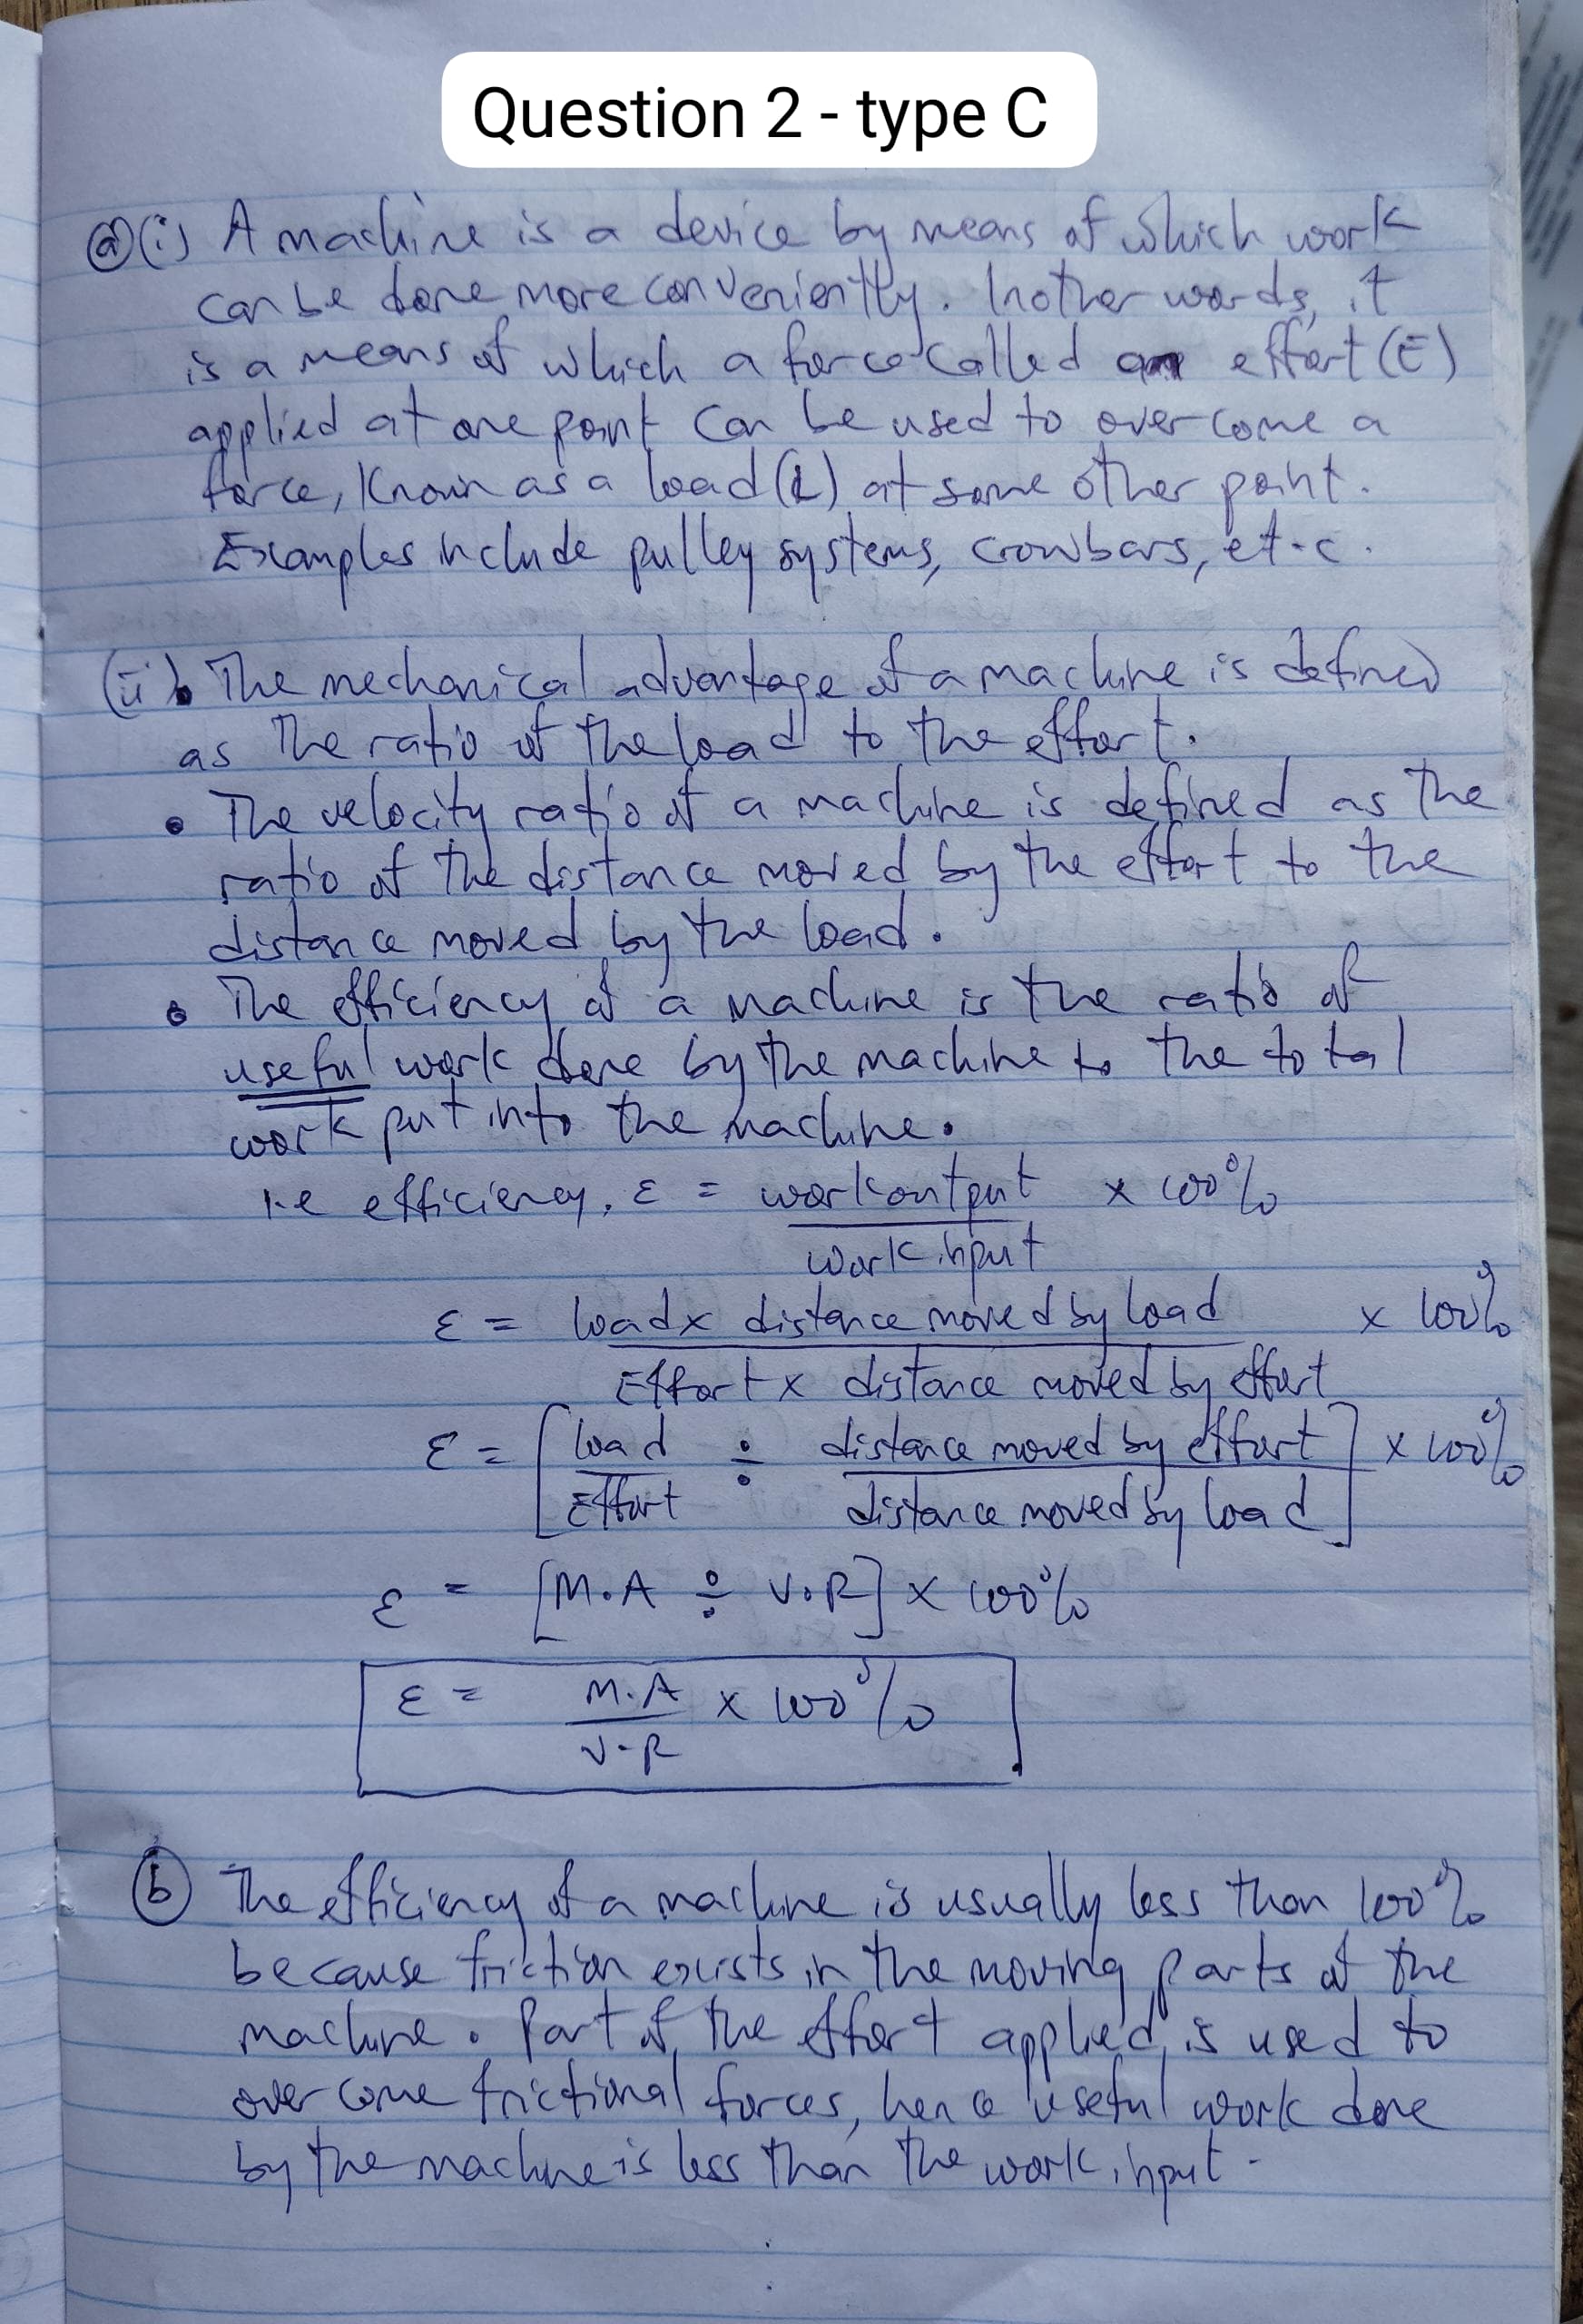 Question 2 - type C
(a)(i) A machine is a device by means of which work
can be done more conveniently. In other words, it
is a means of which a force called an effort (E)
applied at one point can be used to overcome a
force, known as a load (L) at some other point.
Examples include pulley systems, crowbars, et.c.
(ii). The mechanical advantage of a machine is defined
as the ratio of the load to the effort.
• The velocity ratio of a machine is defined as the
ratio of the distance moved by the effort to the
distance moved by the load.
• The efficiency of a machine is the ratio of
useful work done by the machine to the total
work put into the machine.
i.e efficiency, ε = work output × 100%
work input
ε = load × distance moved by load × 100%
Effort × distance moved by effort
ε = [load ÷ distance moved by effort] × 100%
Effort distance moved by load
ε = [M.A ÷ V.R] × 100%
ε = M.A × 100%
V.R
(b) The efficiency of a machine is usually less than 100%
because friction exists in the moving parts of the
machine. Part of the effort applied is used to
overcome frictional forces, hence useful work done
by the machine is less than the work input.